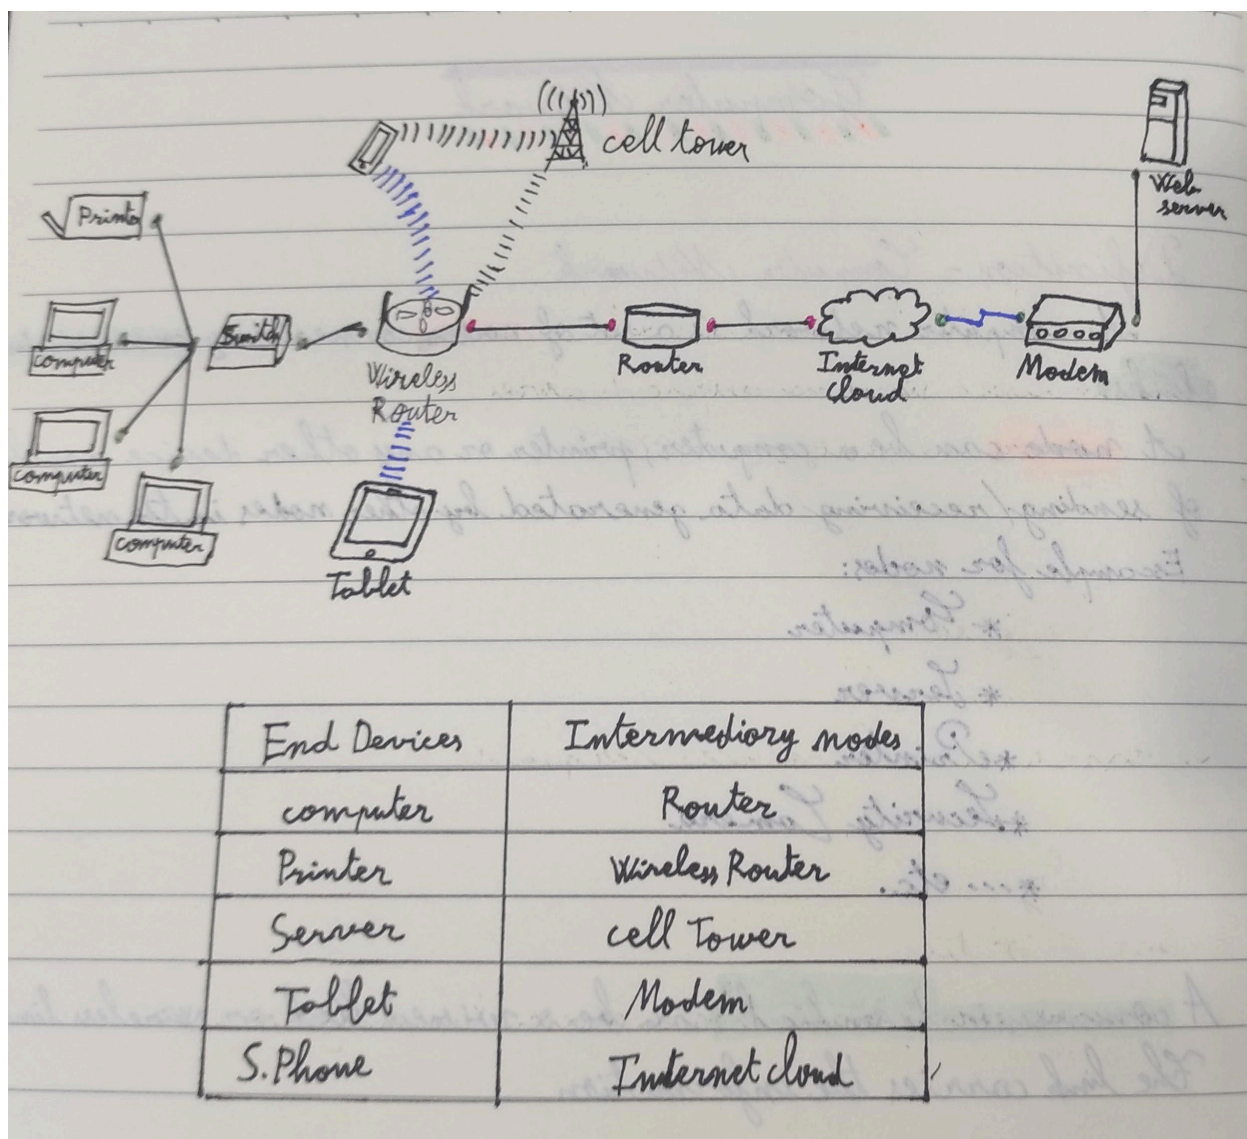 cell tower
Web
server
Printer
Switch
computer
computer
computer
Wireless
Router
Router
Internet
cloud
Modem
Tablet
End Devices Intermediory nodes
computer Router
Printer Wireless Router
Server cell Tower
Tablet Modem
S.Phone Internet cloud